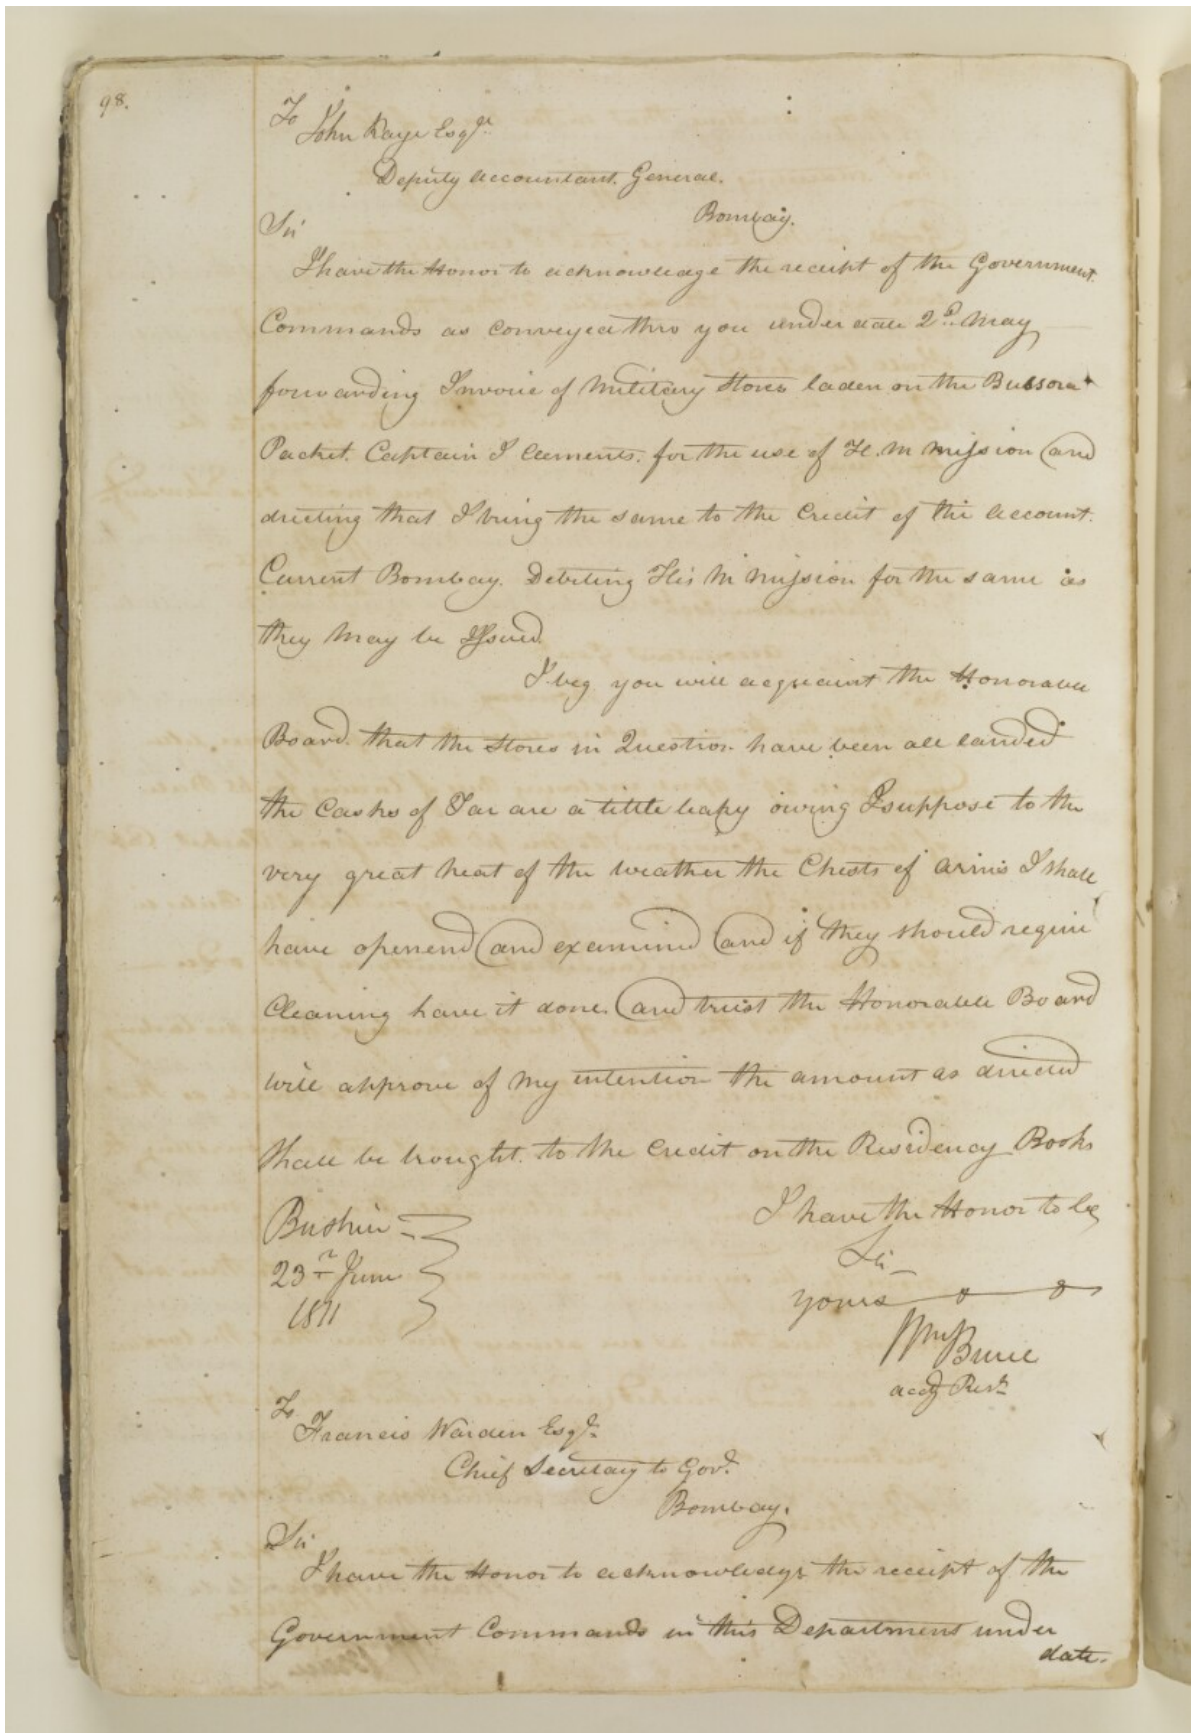 98.
To
John Kaye Esqr.
Deputy Accountant General.
Bombay.
Sir
I have the Honor to acknowledge the receipt of the Government
Commands as conveyed thro you under date 2d. May
forwarding Invoice of Military Stores laden on the Bussora
Packet. Captain I Clements. for the use of H. M Mission and
directing that I bring the same to the Credit of the Account.
Current Bombay. Debiting His M Mission for the same as
they May be Issued
I beg you will acquaint the Honorable
Board. that the Stores in Question have been all landed
the Casks of Tar are a little leaky owing I suppose to the
very great heat of the weather the Chests of Arms I shall
have openend and examined and if they should require
Cleaning have it done. and trust the Honorable Board
will approve of my intention the amount as directed
Shall be brought. to the Credit on the Residency Books
I have the Honor to be
Sir
Yours
Bushire
23rd June
1811
Wm Bruce
actg Resdt
To
Francis Warden Esqr.
Chief Secretary to Govt.
Bombay.
Sir
I have the Honor to acknowledge the receipt of the
Government Commands in this Department under
date.